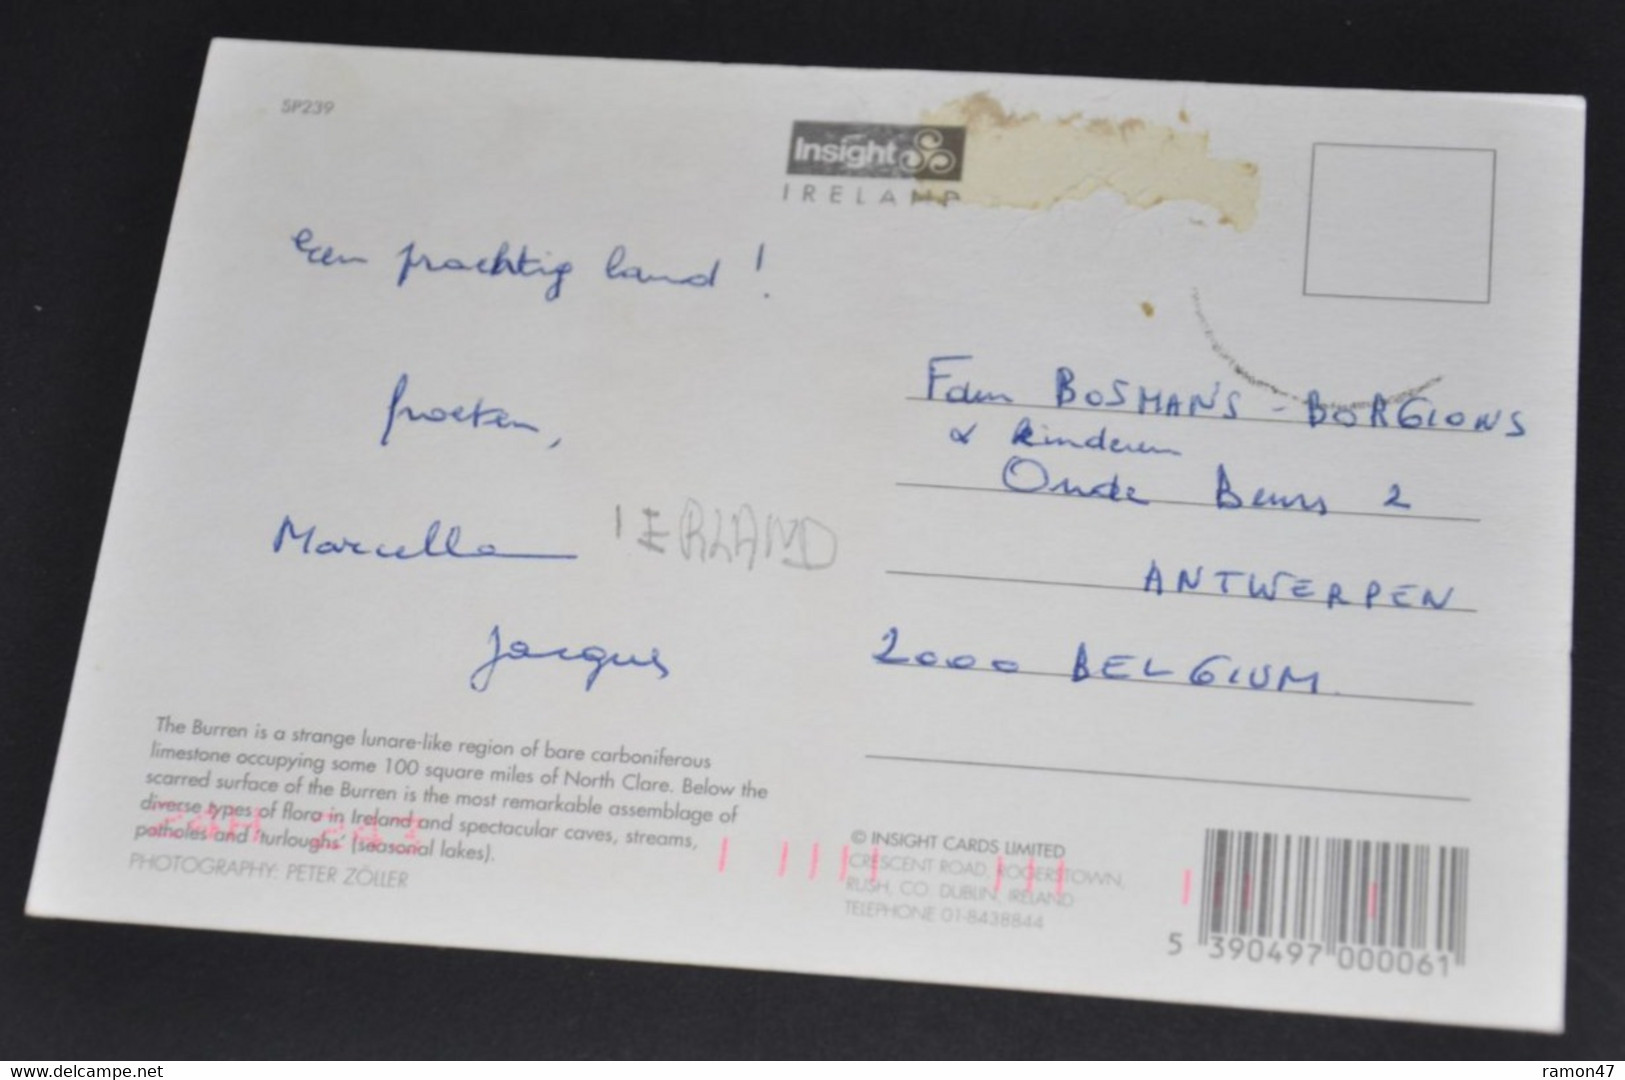 SP239
Insight
IRELAND
Een prachtig land !
Groeten,
Marcella
Jacques
IERLAND
Fam BOSMANS - BORGIONS
& kinderen
Oude Beurs 2
ANTWERPEN
2000 BELGIUM
The Burren is a strange lunare-like region of bare carboniferous
limestone occupying some 100 square miles of North Clare. Below the
scarred surface of the Burren is the most remarkable assemblage of
diverse types of flora in Ireland and spectacular caves, streams,
potholes and 'turloughs' (seasonal lakes).
PHOTOGRAPHY: PETER ZÖLLER
© INSIGHT CARDS LIMITED
CRESCENT ROAD, ROGERSTOWN,
RUSH, CO. DUBLIN, IRELAND
TELEPHONE 01-8438844
5 390497 000061
www.delcampe.net
ramon47